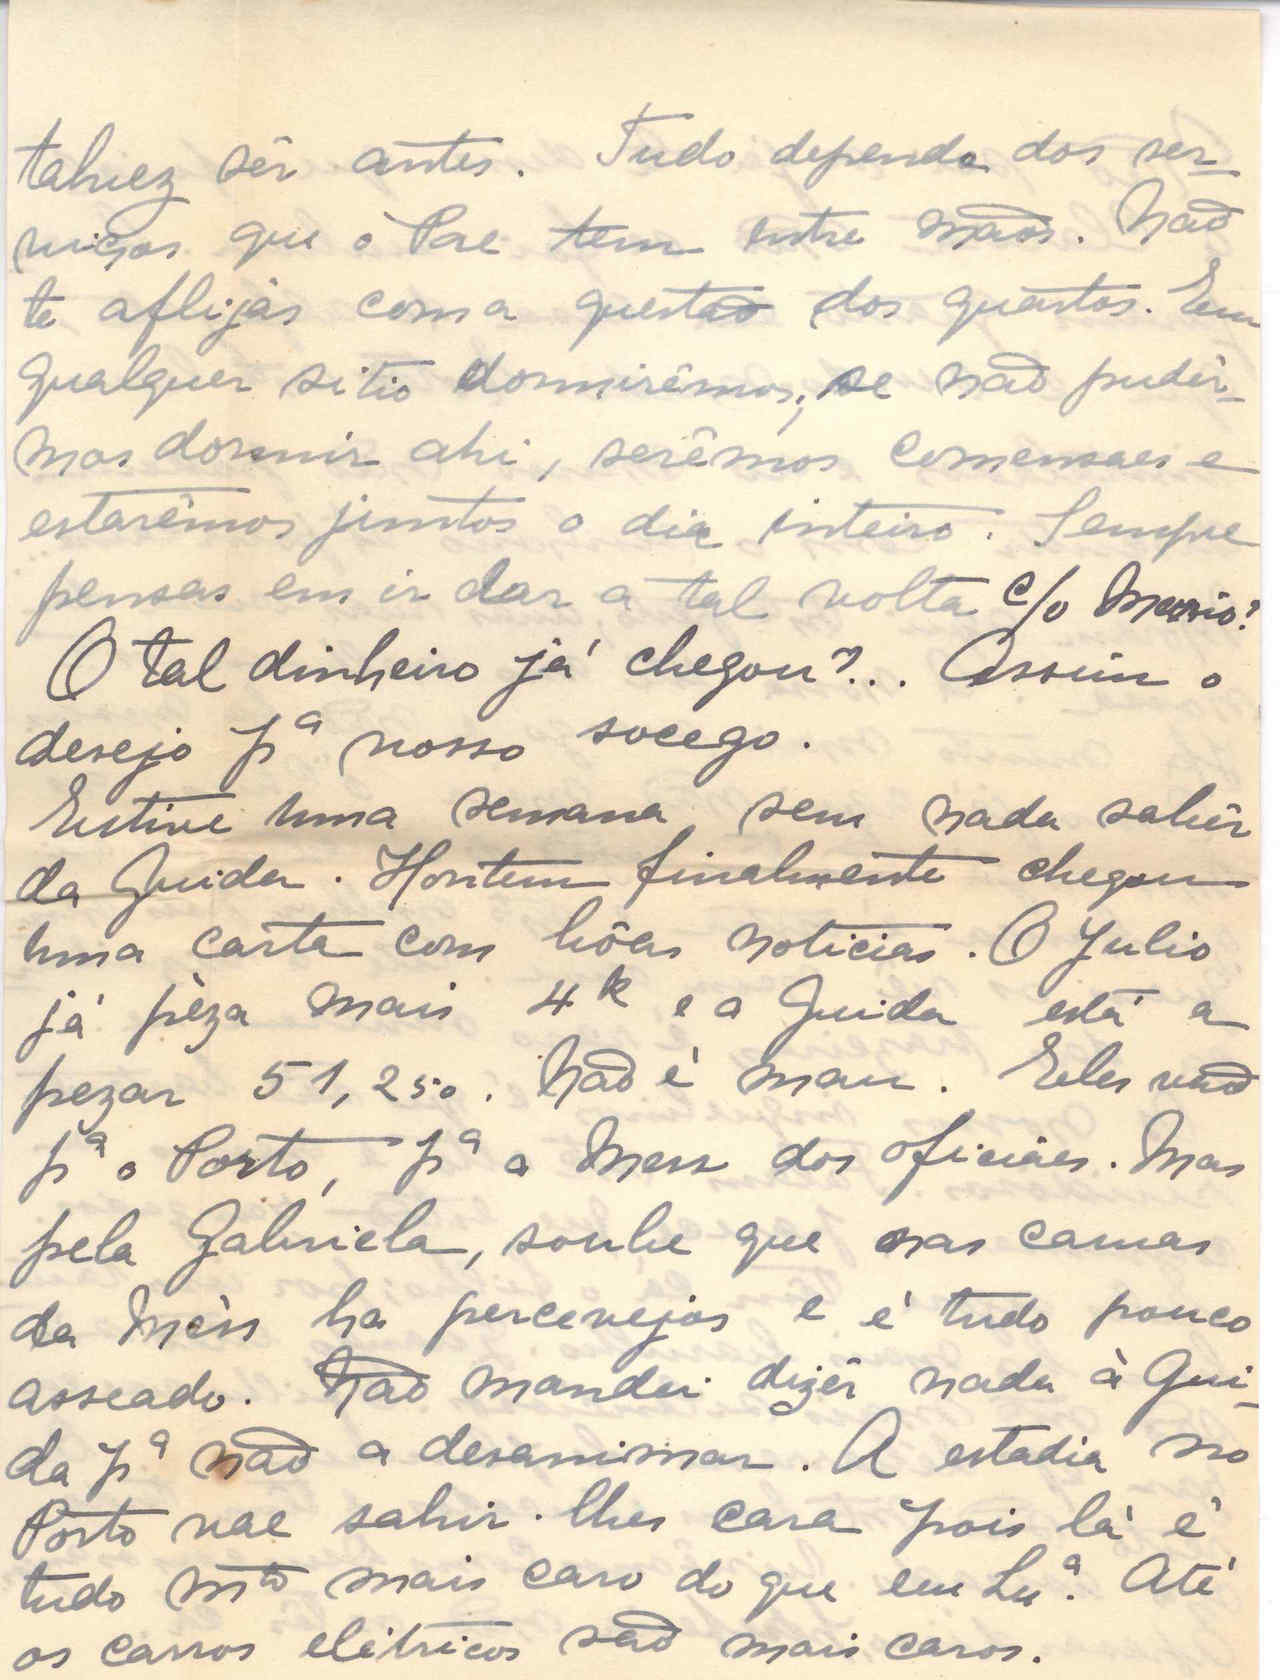 talvez sêr antes. Tudo depende dos ser-
viços que o Pae tem entre mãos. Não
te aflijas com a questão dos quartos. Em
qualquer sitio dormirêmos, se não pudér-
mos dormir ahi, serêmos comensaes e
estarêmos juntos o dia inteiro. Sempre
pensas em ir dar a tal volta c/o Mario?
O tal dinheiro já chegou?... Assim o
desejo pª vosso socego.
Estive uma semana sem nada sabêr
da Guida. Hontem finalmente chegou
uma carta com bôas noticias. O Julio
já péza mais 4k e a Guida está a
pezar 51,250. Não é mau. Eles vão
pª o Porto, pª a Mess dos oficiáes. Mas
pela Gabriela, soube que nas camas
da Méss ha percevejos e é tudo pouco
asseado. Não mandei dizêr nada à Gui-
da pª não a desanimar. A estadia no
Porto vae sahir-lhes cara pois lá é
tudo mto mais caro do que em Lxª. Até
os carros elétricos são mais caros.